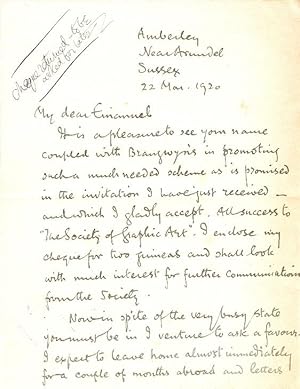 Cheque returned - to be
Amberley
Near Arundel
Sussex
22 Mar. 1920
My dear Emanuel
It is a pleasure to see your name
coupled with Brangwyn's in promoting
such a much needed scheme as is promised
in the invitation I have just received —
and which I gladly accept. All success to
"The Society of Graphic Art". I enclose my
cheque for two guineas and shall look
with much interest for further communications
from the Society.
Now in spite of the very busy state
you must be in I venture to ask a favour.
I expect to leave home almost immediately
for a couple of months abroad and letters